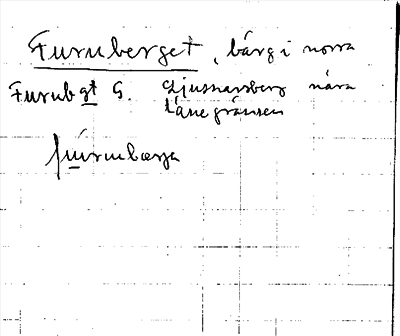 Furuberget, bärg i norra
Furubgt G. Ljusnarsberg nära
länegränsen
fúrubærja